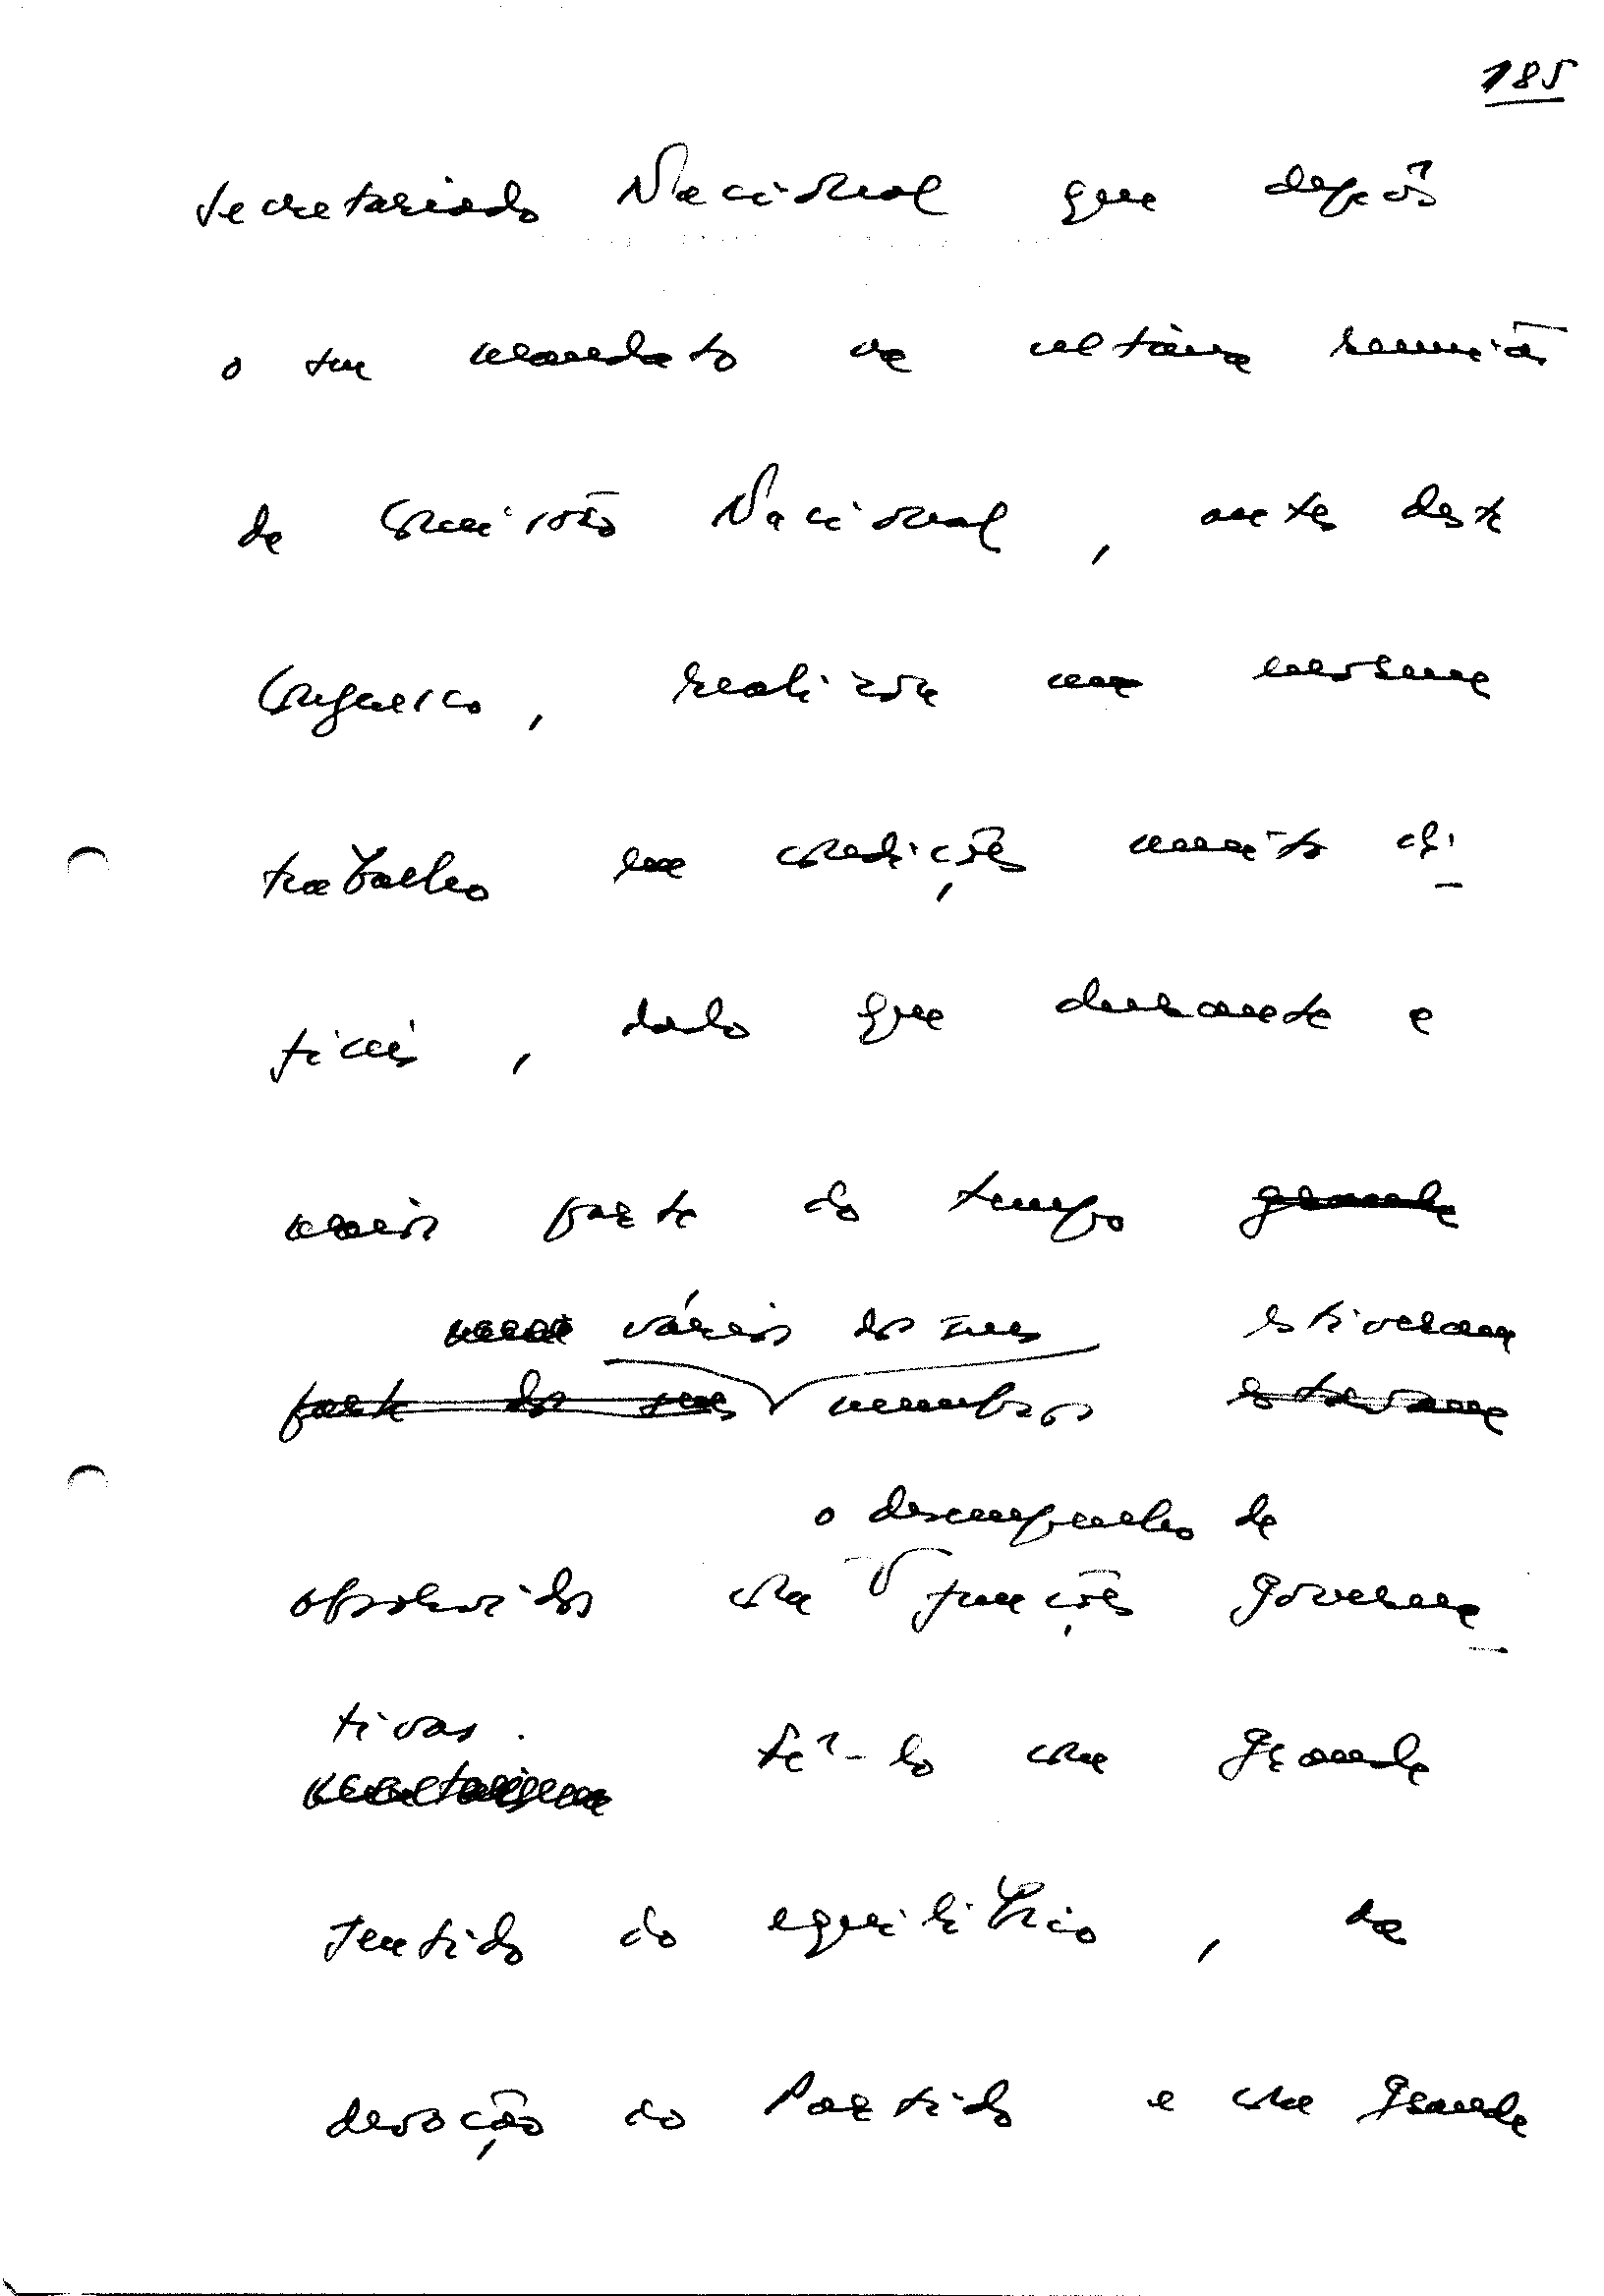 185
Secretariado Nacional que depôs
o seu mandato na última reunião
da Comissão Nacional, antes deste
Congresso, realizou um enorme
trabalho em condições muito di-
fíceis, dado que durante a
maior parte do tempo grande
vários dos seus estiveram
parte dos seus membros estavam
o desempenho de
absorvidos com funções governa-
tivas. Fê-lo com grande
sentido do equilíbrio, de
devoção ao Partido e com grande